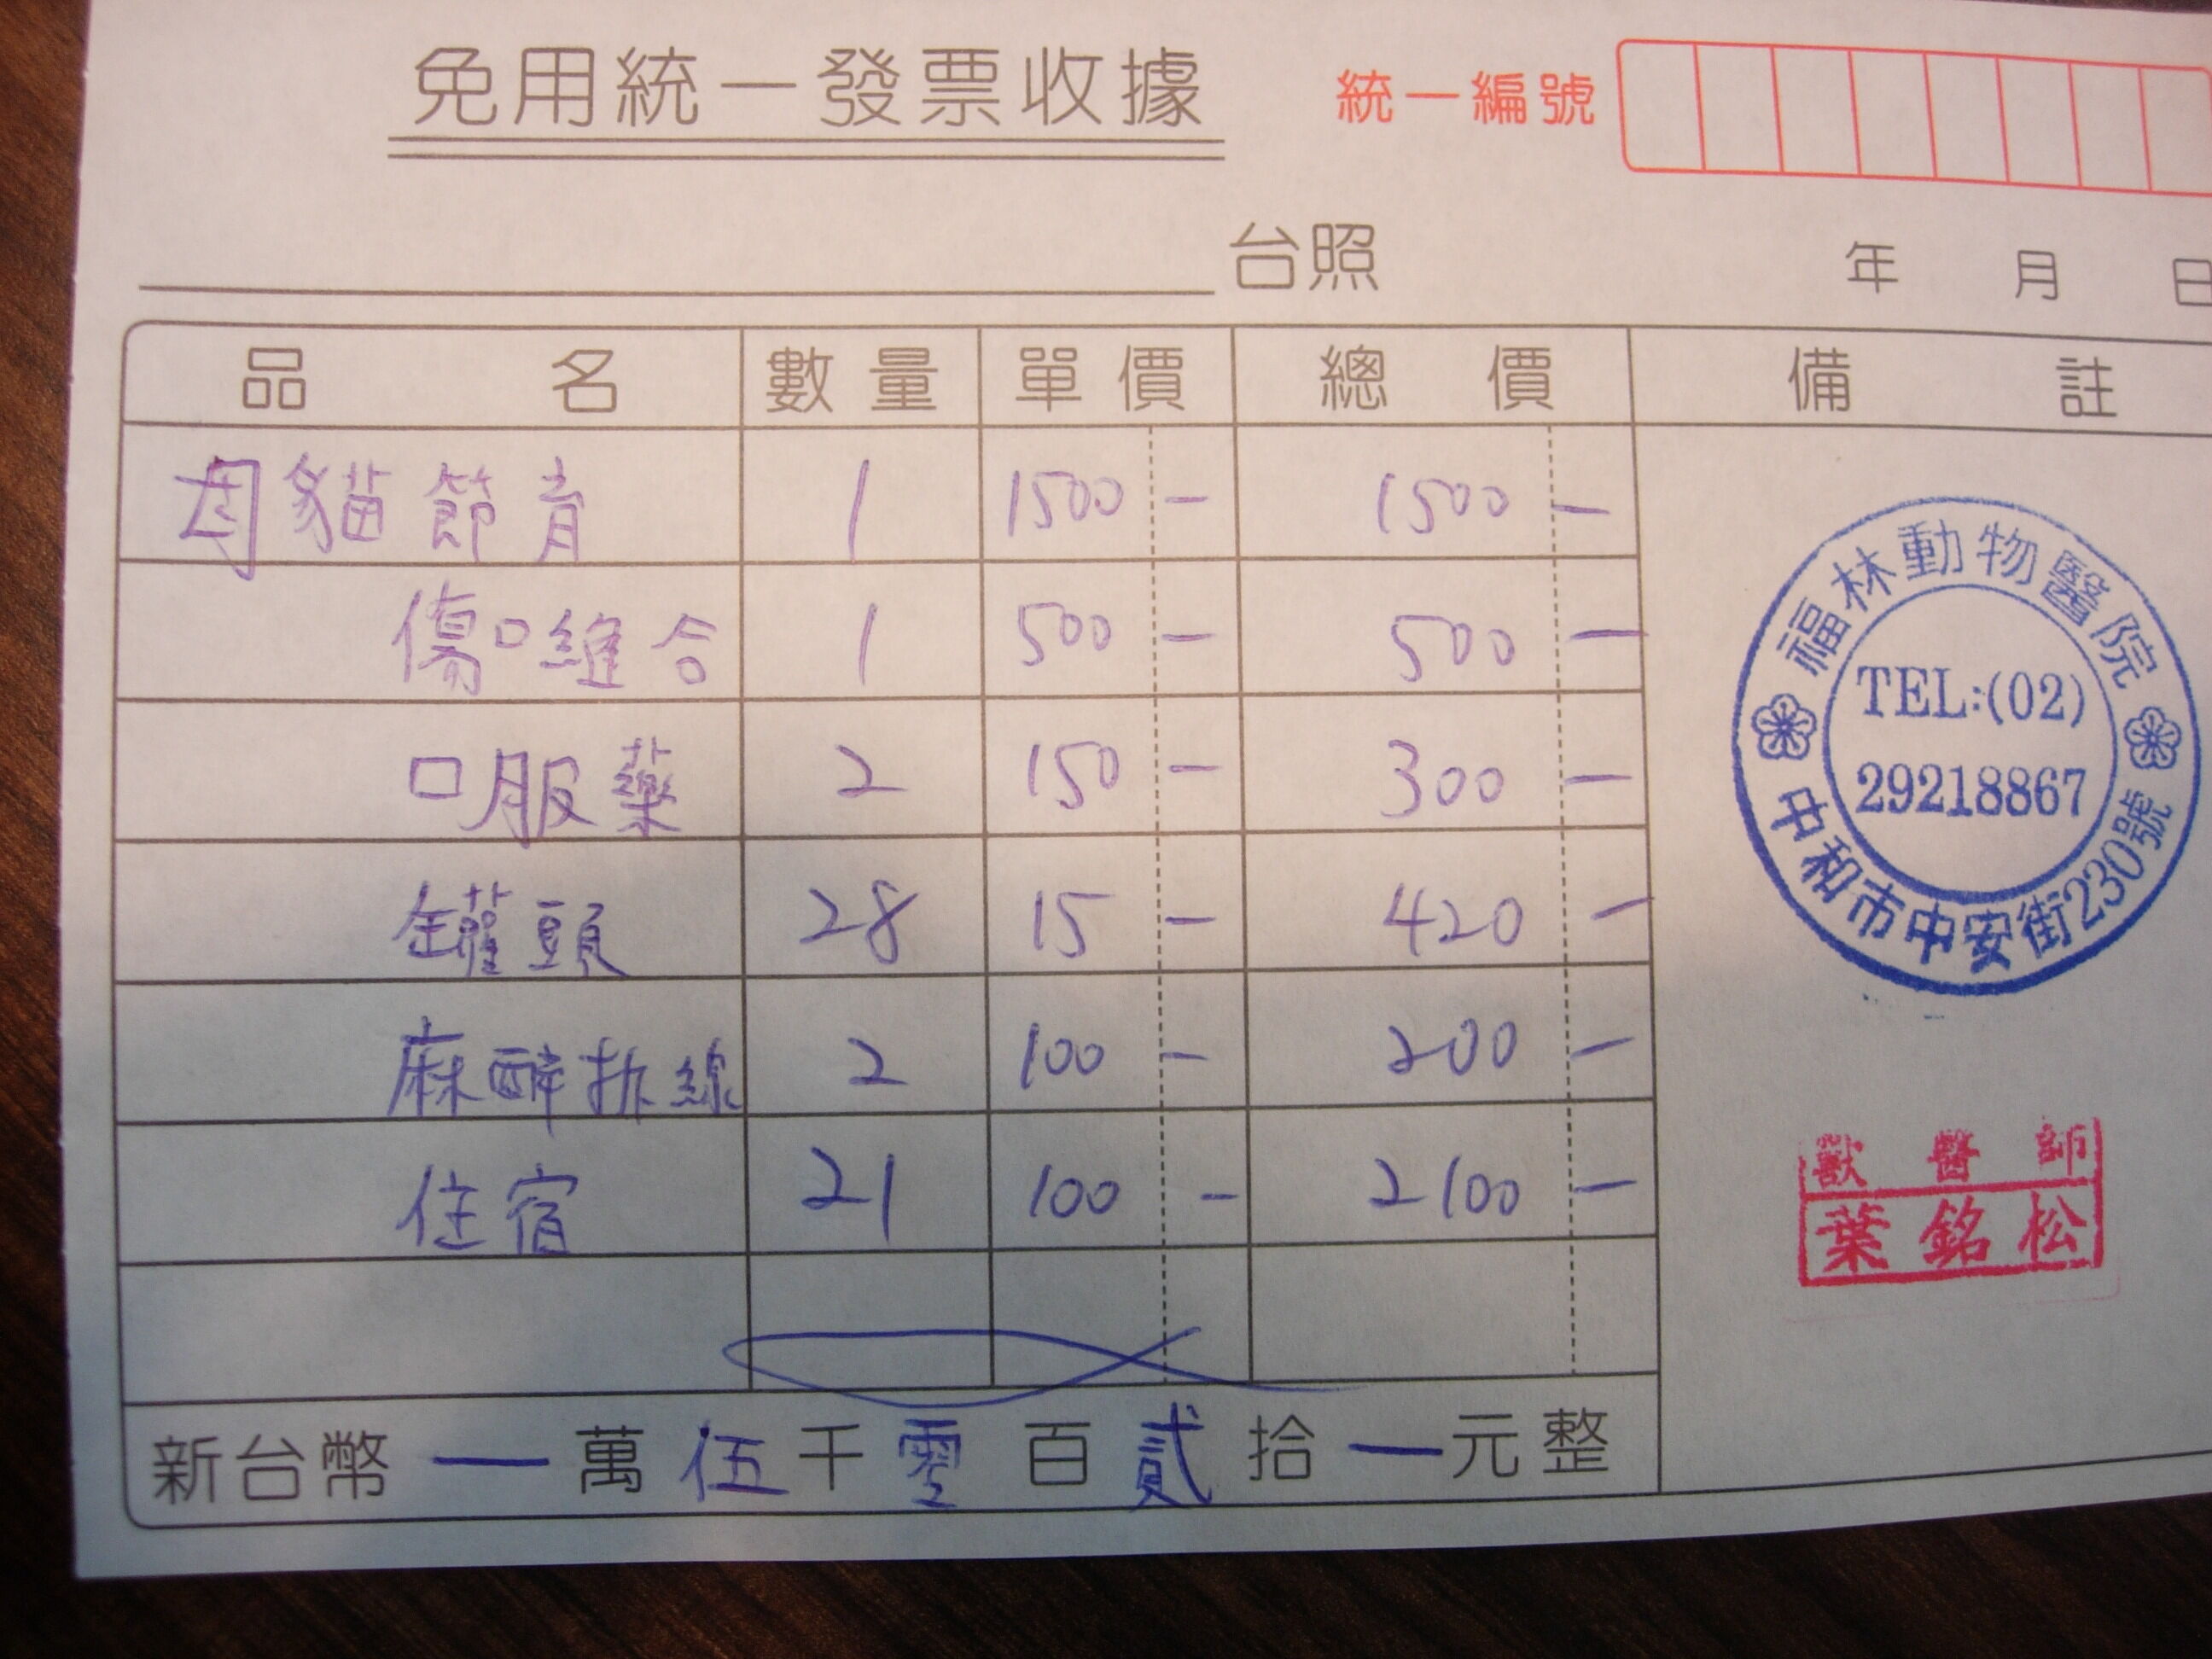 免用統一發票收據 統一編號
台照 年 月 日
品名 數量 單價 總價 備註
母貓節育 1 1500 - 1500 -
傷口維合 1 500 - 500 -
口服藥 2 150 - 300 -
罐頭 28 15 - 420 -
麻醉拆線 2 100 - 200 -
住宿 21 100 - 2100 -
新台幣 一 萬 伍 千 零 百 貳 拾 一 元整
福林動物醫院
TEL:(02)
29218867
中和市中安街230號
獸醫師
葉銘松